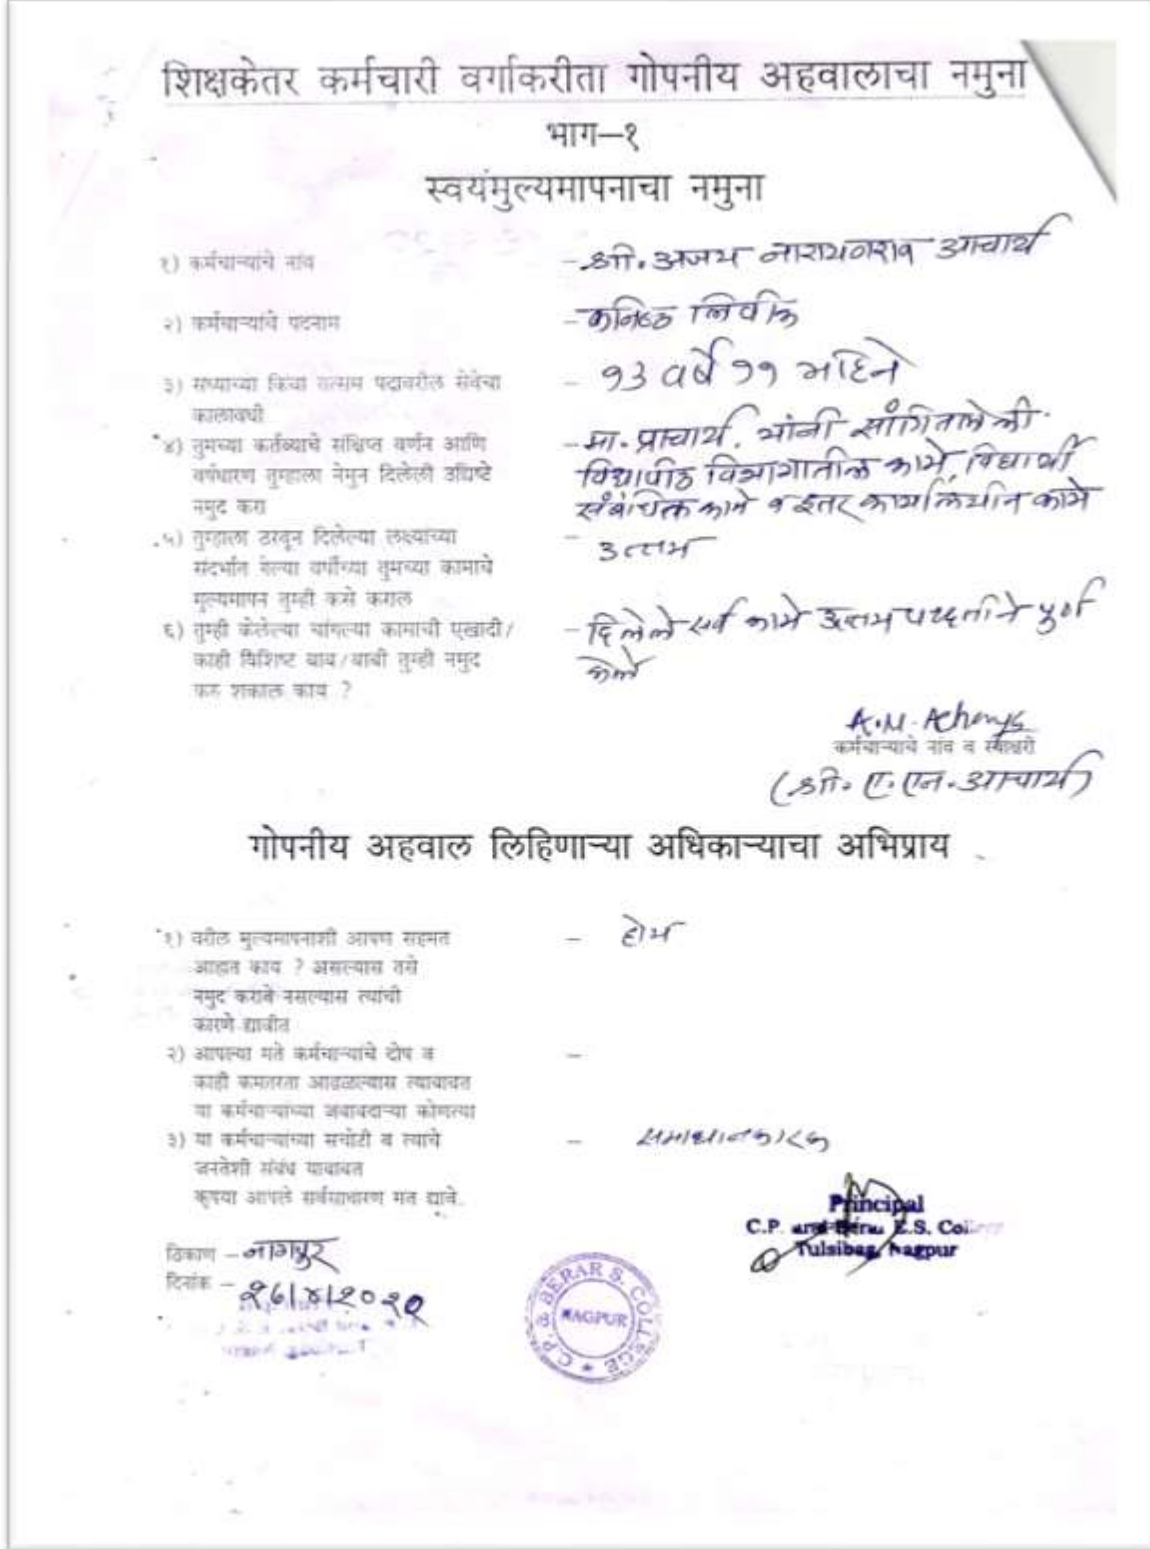 शिक्षकेतर कर्मचारी वर्गाकरीता गोपनीय अहवालाचा नमुना
भाग—१
स्वयंमुल्यमापनाचा नमुना
१) कर्मचाऱ्यांचे नांव – श्री. अजय नारायणराव आचार्य
२) कर्मचाऱ्यांचे पदनाम – कनिष्ठ लिपीक
३) सध्याच्या किंवा तत्सम पदावरील सेवेचा – १३ वर्षे ११ महिने
कालावधी
४) तुमच्या कर्तव्याचे संक्षिप्त वर्णन आणि – मा. प्राचार्य यांनी सांगितलेली
वर्षधारण तुम्हाला नेमुन दिलेली उद्यिष्टे विद्यापीठ विभागातील कामे, विद्यार्थी
नमुद करा संबंधित कामे व इतर कार्यालयीन कामे
५) तुम्हाला ठरवून दिलेल्या लक्ष्यांच्या – उत्तम
संदर्भात गेल्या वर्षीच्या तुमच्या कामाचे
मुल्यमापन तुम्ही कसे कराल
६) तुम्ही केलेल्या चांगल्या कामाची एखादी/ – दिलेले सर्व कामे उत्तम पध्दतीने पुर्ण
काही विशिष्ट बाब/बाबी तुम्ही नमुद केले
करु शकाल काय ?
कर्मचाऱ्याचे नांव व स्वाक्षरी
(श्री. ए. एन. आचार्य)
गोपनीय अहवाल लिहिणाऱ्या अधिकाऱ्याचा अभिप्राय
१) वरील मुल्यमापनाशी आपण सहमत – होय
आहात काय ? असल्यास तसे
नमुद करावे नसल्यास त्यांची
कारणे द्यावीत
२) आपल्या मते कर्मचाऱ्यांचे दोष व –
काही कमतरता आढळल्यास त्याबाबत
या कर्मचाऱ्यांच्या जबाबदाऱ्या कोणत्या
३) या कर्मचाऱ्यांच्या सचोटी व त्याचे – समाधानकारक
जनतेशी संबंध याबाबत
कृपया आपले सर्वसाधारण मत द्यावे.
Principal
C.P. and Berar E.S. College
Tulsibag, Nagpur
ठिकाण – नागपुर
दिनांक –
C.P. & BERAR S. COLLEGE
NAGPUR